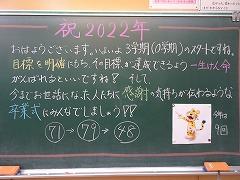 祝2022年
おはようございます。いよいよ3学期(0学期)のスタートですね。
目標を明確にもち、その目標が達成できるよう一生けん命
がんばれるといいですね!そして、
今までお世話になった人たちに感謝の気持ちが伝わるような
卒業式にみんなでしましょう!!
71→79→48
今年は
9回